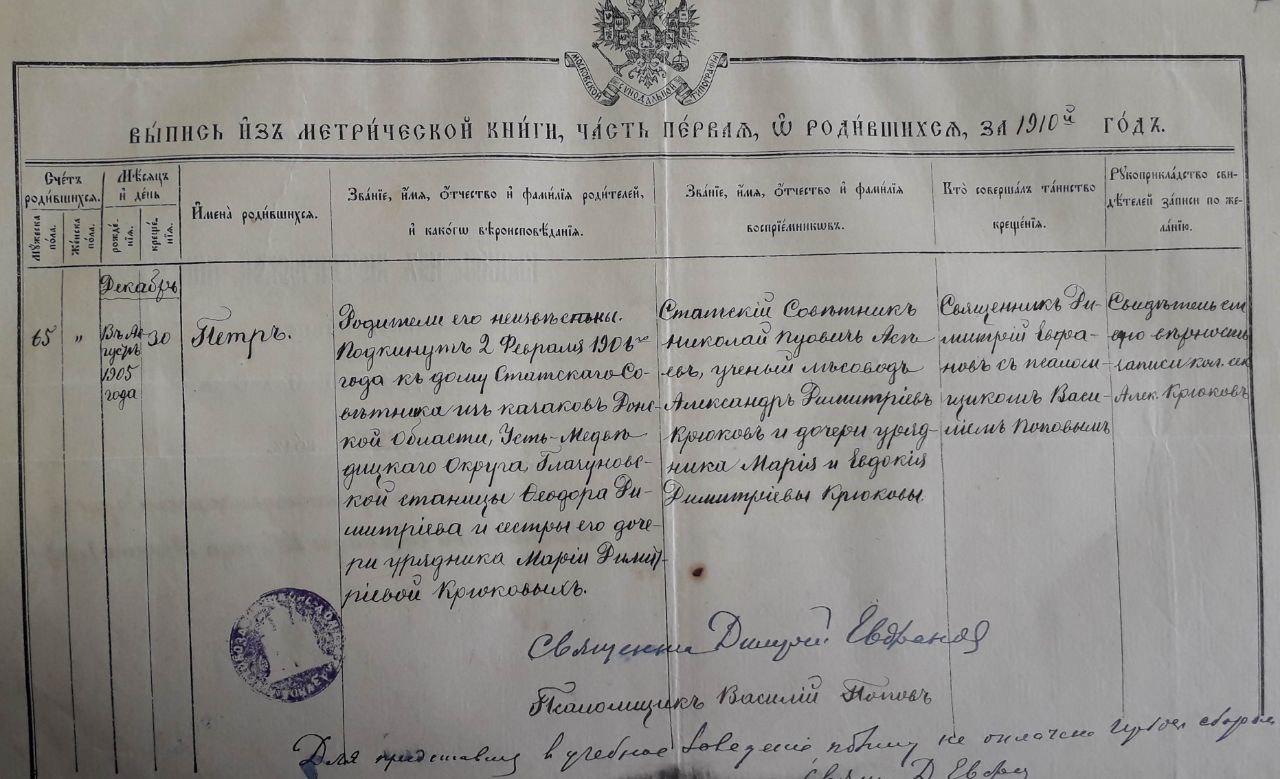 МОСКОВСКОЙ СИНОДАЛЬНОЙ ТИПОГРАФІИ
ВЫ́ПИСЬ И҆ЗЪ МЕТРИ́ЧЕСКОЙ КНИ́ГИ, ЧА́СТЬ ПЕ́РВАЯ, Ѡ҆ РОДИ́ВШИХСЯ, ЗА 1910й ГО́ДЪ.
Сче́тъ родившихся.
Мꙋ́жеска пола.
Же́нска по́ла.
Мѣ́сяцъ и҆ де́нь
рожде́нїя.
креще́нїя.
И҆мена̀ роди́вшихся.
Зва́нїе, и҆́мя, ѻ҆́тчество и҆ фами́лїя роди́телей,
и҆ како́гѡ вѣроисповѣ́данїя.
Зва́нїе, и҆́мя, ѻ҆́тчество и҆ фами́лїя
воспрїе́мникѡвъ.
Кто̀ соверша́лъ та́инство
креще́нїя.
Рꙋкоприкла́дство сви-
дѣ́телей за́писи по же-
ла́нїю.
Декабрь
65
"
Въ Ав-
густѣ
1905
года
30
Петръ.
Родители его неизвѣстны.
Подкинутъ 2 Февраля 1906го
года къ дому Статскаго Со-
вѣтника изъ казаковъ Донс-
кой Области, Усть-Медвѣ
дицкаго Округа, Глазуновс-
кой станицы Ѳеодора Ди-
митріева и сестры его доче-
ри урядника Маріи Димит-
ріевой Крюковыхъ.
Статскій Совѣтникъ
Николай Пудовичъ Асѣ
евъ, ученый лѣсоводъ
Александръ Димитріевъ
Крюковъ и дочери уряд-
ника Марія и Евдокія
Димитріевы Крюковы
Священникъ Ди-
митрій Евфра-
новъ съ псалом-
щикомъ Васи-
ліемъ Поповымъ
Свидѣтель
вѣрность
записи кол. сек
Алек. Крюковъ
Священникъ Димитрій Евфрановъ
Псаломщикъ Василій Поповъ
Для представл въ учебное заведеніе почему не оплачено гербов сборомъ
Свящ Д Евфра